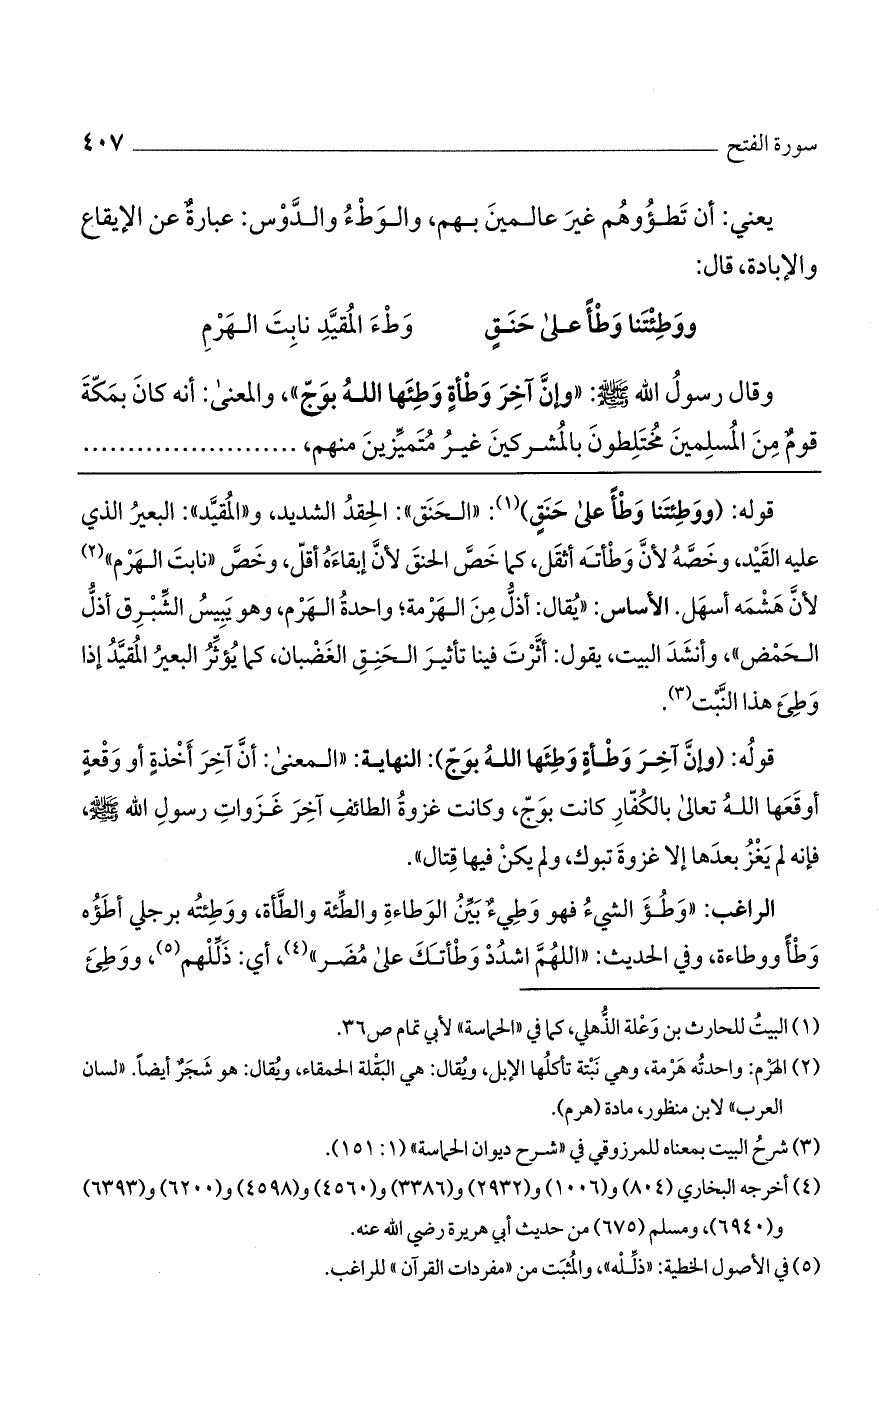 سورة الفتح ٤٠٧
يعني: أن تَطَؤُوهُم غيرَ عالمينَ بهم، والوَطْءُ والدَّوْس: عبارةٌ عن الإيقاع
والإبادة، قال:
ووَطِئْتَنا وَطْأً على حَنَقٍ وَطْءَ المُقيَّدِ نابِتَ الهَرْمِ
وقال رسولُ الله ﷺ: «وإنَّ آخِرَ وَطْأةٍ وَطِئَها اللهُ بوَجّ»، والمعنىٰ: أنه كانَ بمَكّةَ
قومٌ مِنَ المُسلِمينَ مُختَلِطونَ بالمُشركينَ غيرُ مُتَميِّزينَ منهم، ........................
قوله: (ووَطِئتَنا وَطْأً علىٰ حَنَقٍ)(١): «الحَنَق»: الحِقدُ الشديد، و«المُقيَّد»: البعيرُ الذي
عليه القَيْد، وخَصَّهُ لأنَّ وَطْأتَه أثقَل، كما خَصَّ الحنقَ لأنَّ إبقاءَهُ أقلّ، وخَصَّ «نابتَ الهَرْم»(٢)
لأنَّ هَشْمَه أسهَل. الأساس: «يُقال: أذلُّ مِنَ الهَرْمة؛ واحدةُ الهَرْم، وهو يَبِيسُ الشِّبْرِق أذلُّ
الحَمْض»، وأنشَدَ البيت، يقول: أثَّرْتَ فينا تأثيرَ الحَنِقِ الغَضْبان، كما يُؤثِّرُ البعيرُ المُقيَّدُ إذا
وَطِئَ هذا النَّبْت(٣).
قولُه: (وإنَّ آخِرَ وَطْأةٍ وَطِئَها اللهُ بوَجّ): النهاية: «المعنىٰ: أنَّ آخِرَ أَخْذةٍ أو وَقْعةٍ
أوقَعَها اللهُ تعالىٰ بالكُفّارِ كانت بوَجّ، وكانت غزوةُ الطائفِ آخِرَ غَزَواتِ رسولِ الله ﷺ،
فإنه لم يَغْزُ بعدَها إلا غزوةَ تبوك، ولم يكنْ فيها قِتال».
الراغب: «وَطُؤَ الشيءُ فهو وَطِيءٌ بَيِّنُ الوَطاءةِ والطِّئة والطَّأة، ووَطِئتُه برجلي أطَؤُه
وَطْأً ووطاءة، وفي الحديث: «اللهُمَّ اشدُدْ وَطْأتَكَ علىٰ مُضَر»(٤)، أي: ذَلِّلْهم(٥)، ووَطِئَ
(١) البيتُ للحارث بن وَعْلة الذُّهلي، كما في «الحماسة» لأبي تمام ص٣٦.
(٢) الهَرْم: واحدتُه هَرْمة، وهي نَبْتة تأكلُها الإبل، ويُقال: هي البَقْلة الحمقاء، ويُقال: هو شَجَرٌ أيضاً. «لسان
العرب» لابن منظور، مادة (هرم).
(٣) شرحُ البيت بمعناه للمرزوقي في «شرح ديوان الحماسة» (١: ١٥١).
(٤) أخرجه البخاري (٨٠٤) و(١٠٠٦) و(٢٩٣٢) و(٣٣٨٦) و(٤٥٦٠) و(٤٥٩٨) و(٦٢٠٠) و(٦٣٩٣)
و(٦٩٤٠)، ومسلم (٦٧٥) من حديث أبي هريرة رضي الله عنه.
(٥) في الأصول الخطية: «ذلِّله»، والمُثبَت من «مفردات القرآن» للراغب.